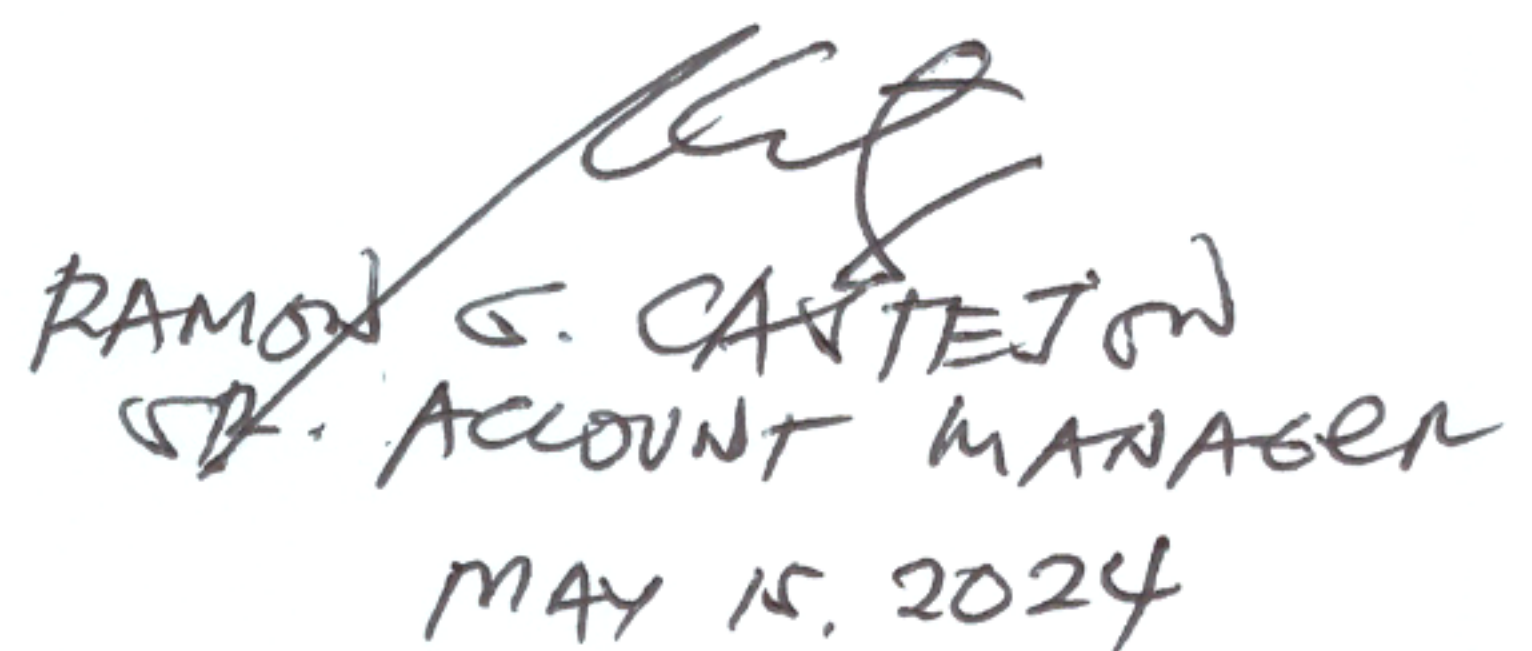 RAMON S. CASTEJON
SR. ACCOUNT MANAGER
MAY 15, 2024